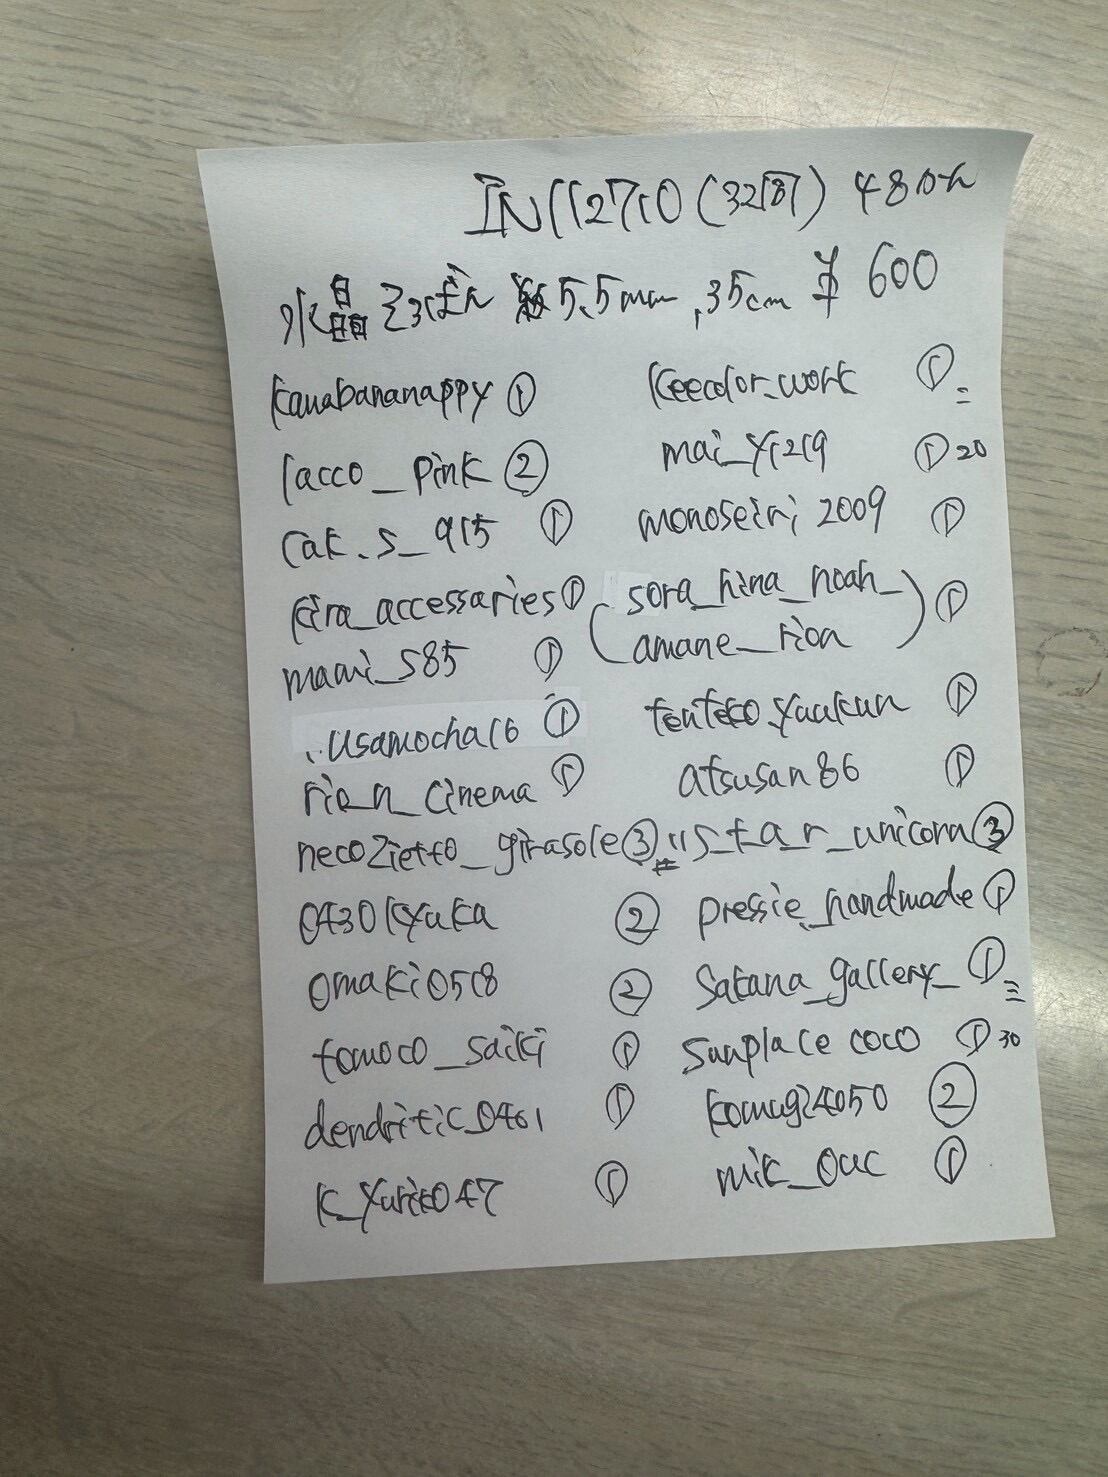 IN112710 (32個) 480h
水晶 さざれ 約5.5mm, 35cm ¥600
kanabananappy ①
lacco_pink ②
cat.s_915 ①
kira_accessaries ①
mami_s85 ①
.usamocha16 ①
rio_n_cinema ①
necozietto_girasole ③
04301kyuka ②
omaki0508 ②
tomoco_saiki ①
dendritic_0461 ①
k_yuriko47 ①
keecolor_work ①
mai_y1219 ① 20
monoseiri2009 ①
(sora_hina_noah_
amane_rion) ①
tenteko.yuukun ①
atsusan86 ①
s_t_a_r_unicorn ③
pressie_handmade ①
satana_gallery_ ①
sunplace coco ① 30
komugi4050 ②
mik_ouc ①